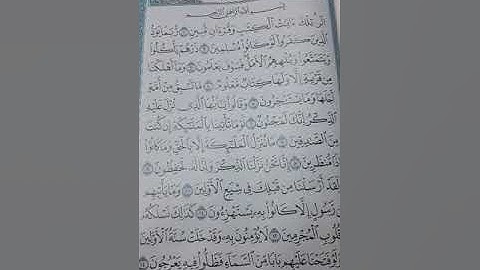 بِسْمِ اللَّهِ الرَّحْمَٰنِ الرَّحِيمِ
الٓر تِلْكَ ءَايَٰتُ الْكِتَٰبِ وَقُرْءَانٍ مُّبِينٍ ۝ رُّبَمَا يَوَدُّ
الَّذِينَ كَفَرُوا لَوْ كَانُوا مُسْلِمِينَ ۝ ذَرْهُمْ يَأْكُلُوا
وَيَتَمَتَّعُوا وَيُلْهِهِمُ الْأَمَلُ فَسَوْفَ يَعْلَمُونَ ۝ وَمَا أَهْلَكْنَا
مِن قَرْيَةٍ إِلَّا وَلَهَا كِتَابٌ مَّعْلُومٌ ۝ مَّا تَسْبِقُ مِنْ أُمَّةٍ
أَجَلَهَا وَمَا يَسْتَـْٔخِرُونَ ۝ وَقَالُوا يَٰأَيُّهَا الَّذِي نُزِّلَ عَلَيْهِ
الذِّكْرُ إِنَّكَ لَمَجْنُونٌ ۝ لَّوْ مَا تَأْتِينَا بِالْمَلَٰئِكَةِ إِن كُنتَ
مِنَ الصَّٰدِقِينَ ۝ مَا نُنَزِّلُ الْمَلَٰئِكَةَ إِلَّا بِالْحَقِّ وَمَا كَانُوا
إِذًا مُّنظَرِينَ ۝ إِنَّا نَحْنُ نَزَّلْنَا الذِّكْرَ وَإِنَّا لَهُ لَحَٰفِظُونَ ۝
لَقَدْ أَرْسَلْنَا مِن قَبْلِكَ فِي شِيَعِ الْأَوَّلِينَ ۝ وَمَا يَأْتِيهِم
مِّن رَّسُولٍ إِلَّا كَانُوا بِهِ يَسْتَهْزِءُونَ ۝ كَذَٰلِكَ نَسْلُكُهُ
قُلُوبِ الْمُجْرِمِينَ ۝ لَا يُؤْمِنُونَ بِهِ وَقَدْ خَلَتْ سُنَّةُ الْأَوَّلِينَ
لَوْ فَتَحْنَا عَلَيْهِم بَابًا مِّنَ السَّمَاءِ فَظَلُّوا فِيهِ يَعْرُجُونَ